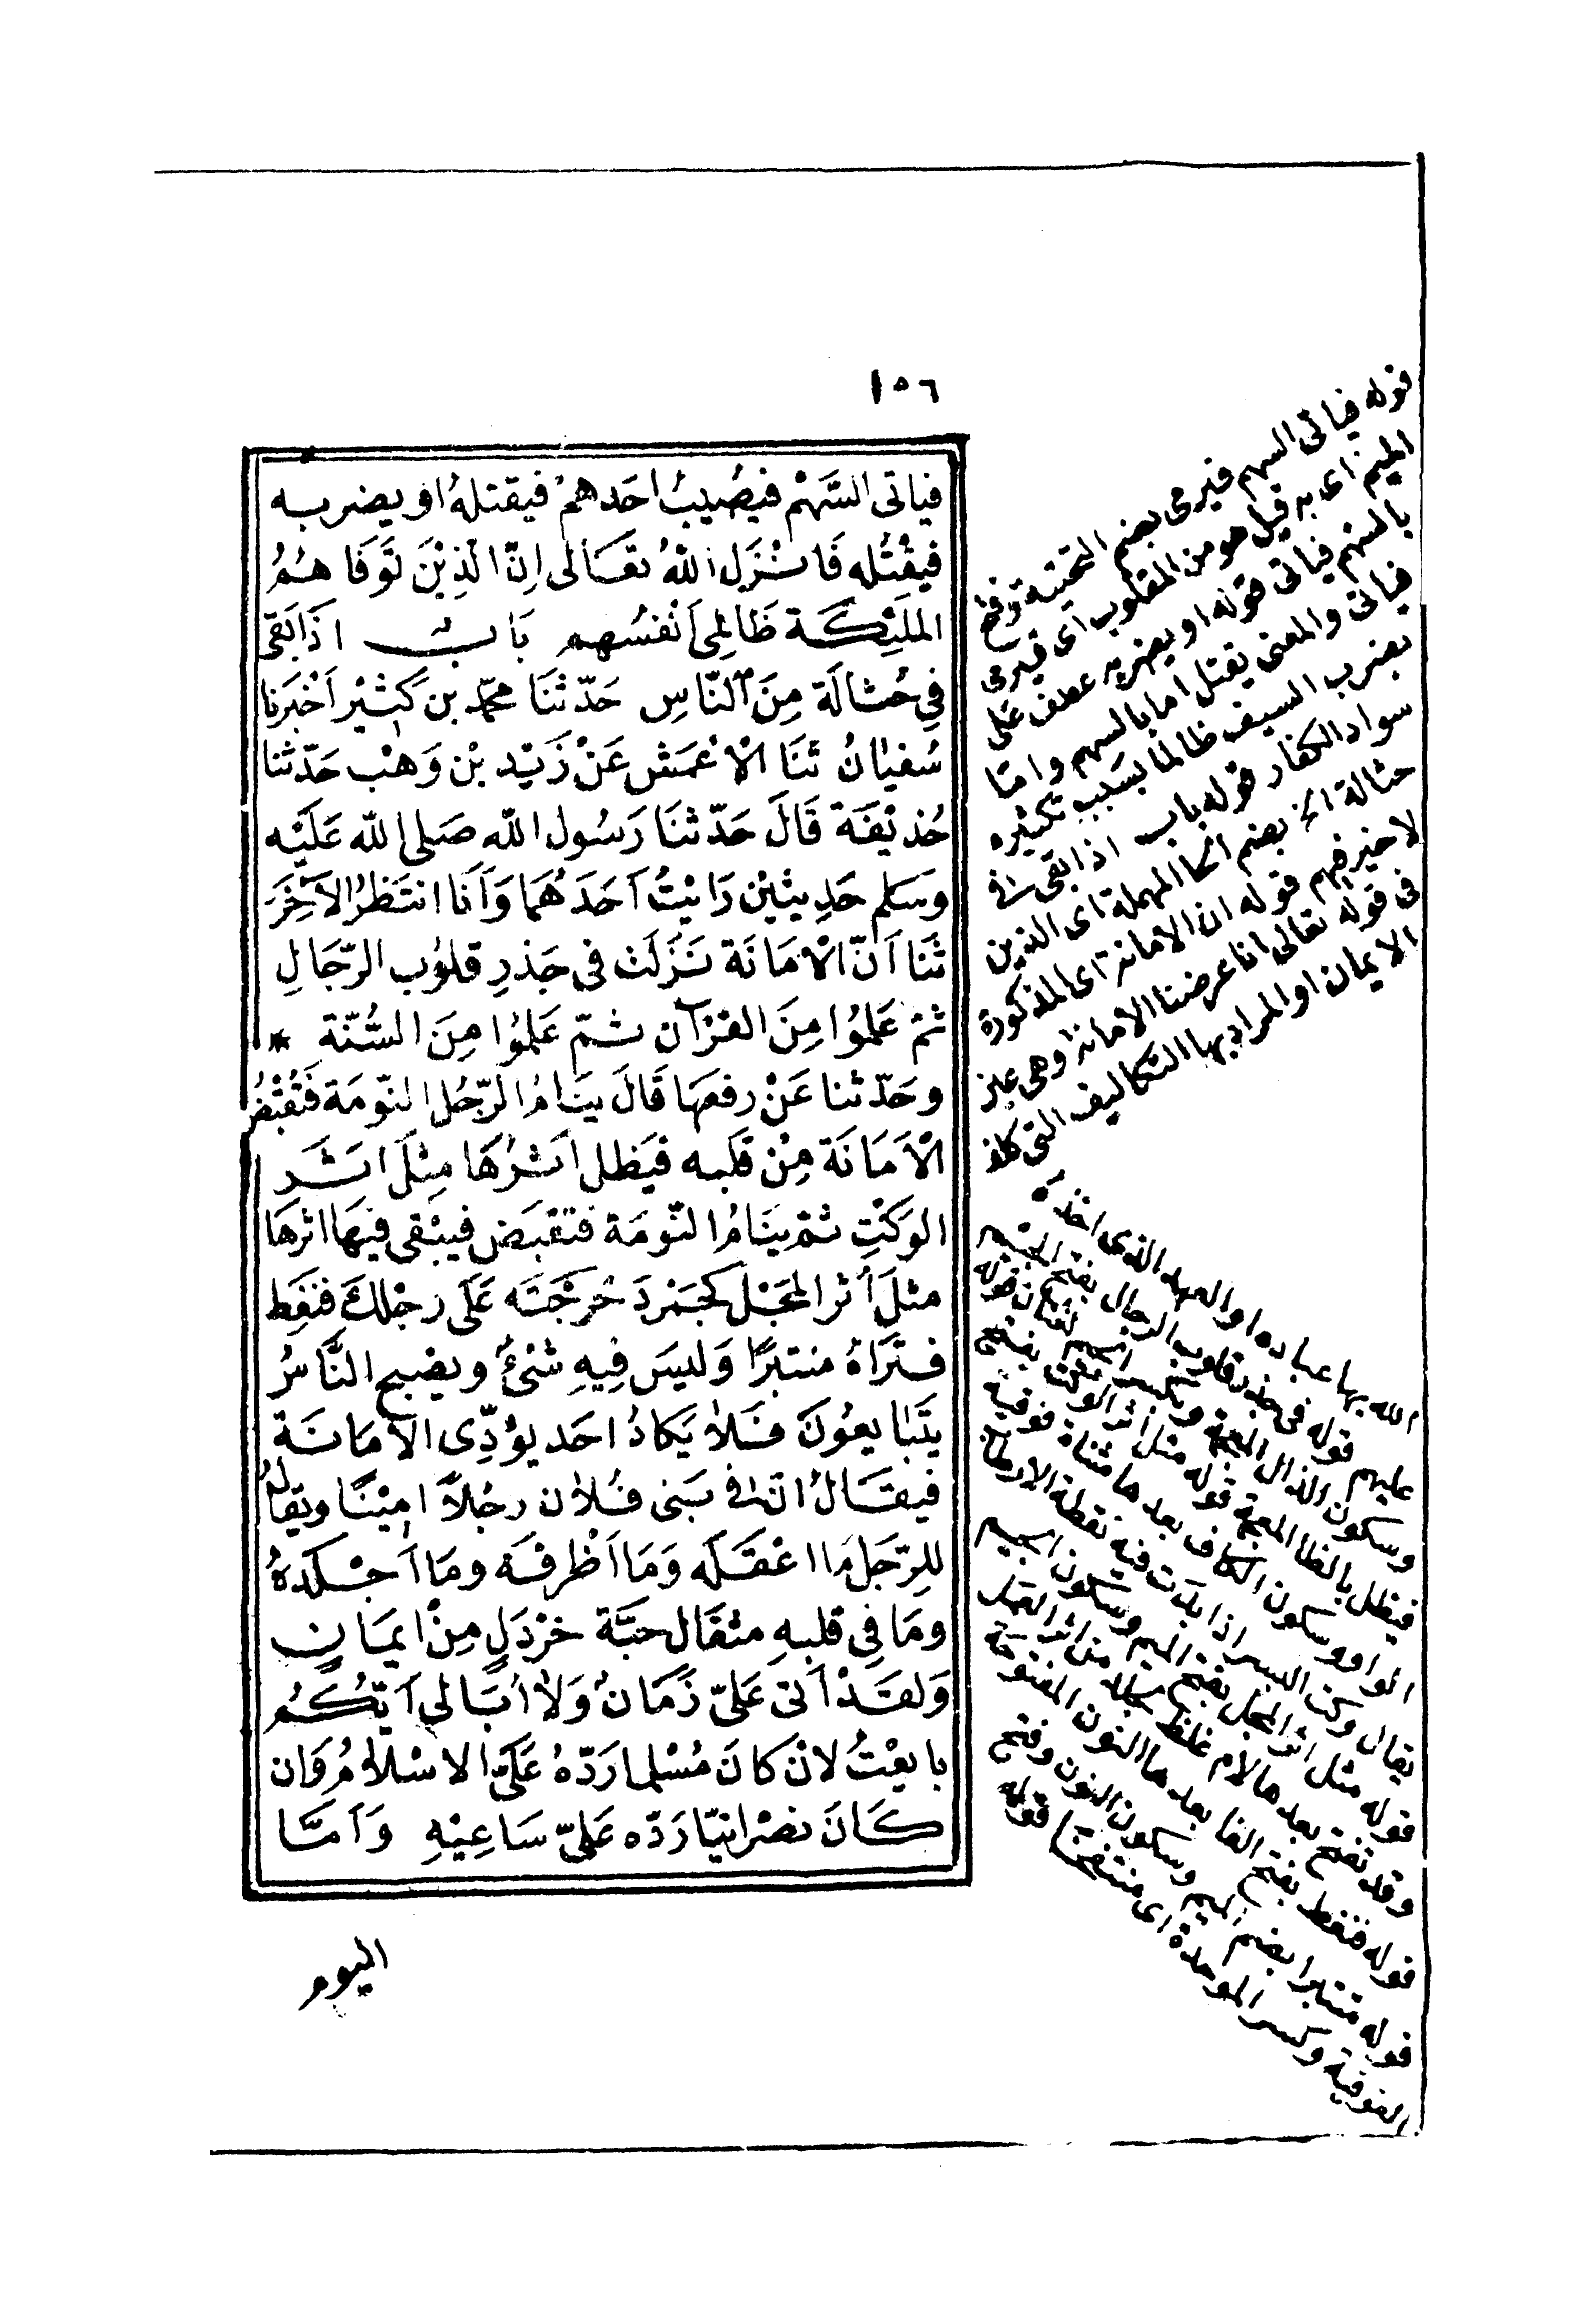 ١٥٦
فياتى السَّهْم فيصُيبُ احَدهمْ فيقتلهُ او يضربه
فيقْتُله فَانْزَل اللهُ تعَالى اِنّ الّذِيْنَ تَوَفَاهُمُ
الملَئِكَة ظَالِمى اَنْفسُهم بَاب اذَا بَقى
فِى حُثالَة مِنَ النّاسِ حَدّثنَا محمّد بن كَثِيْر اَخْبَرنا
سُفيانُ ثنَا الْاعْمَش عَنْ زَيْد بْن وَهْب حَدّثنا
حُذيْفَة قَالَ حَدّثنَا رَسُول الله صَلى الله عَلَيْه
وسَلم حَدِيثيْن رَايْتُ اَحَدَهُمَا وَاَنَا انتَظرُ الآخَرَ
ثَنَا اَنّ الْامَانَة نَزَلَتْ فى جَذرِ قلوُب الرّجَالِ
ثمّ عَلموُا مِنَ القرْآن ثمّ عَلِموُا مِنَ السُّنّة *
وحَدّثنا عَنْ رفعهَا قَالَ يَنَامُ الرّجُل النّومَة فَتُقْبَضُ
الْاَمَانَة مِنْ قَلبه فيَظل اَثرُهَا مِثْلَ اثَر
الوَكْتِ ثمّ يَنَامُ النّومَة فتقْبَض فيبْقى فيهَا اثرهَا
مثلَ أثر المجَل كجَمْر دَحْرَجْتَه عَلَى رجْلكَ فنَفِط
فتَرَاهُ منتبرًا وَليسَ فِيهِ شَئٌ ويصْبح النّاسُ
يتَبَايعوُنَ فَلَا يَكادُ احَد يؤدِّى الْامَانَة
فيقَالُ انّ فى بَنى فُلَان رجُلاً امِيْنًا ويقالُ
للِرّجَل مَا اعْقَلَه وَمَا اَظْرفَه ومَا اَجْلَدهُ
ومَا فِى قلبهِ مثقَال حبَّة خَرْدَلٍ مِنْ ايمَانٍ
وَلقَدْ اَتى عَلىّ زَمَانٌ وَلَا اُبَالى اَيّكُمُ
بايعْتُ لانْ كانَ مُسْلما رَدّهُ عَلَىّ الاسْلَامُ وَان
كَانَ نصْرانيّا رَدّه عَلىّ سَاعِيْهِ وَاَمَّا
اليوم
قوله فياتى السهم فيرمى بضم التحتية وفتح
الميم اى به قيل هو من المقلوب اى فيرمى
بالسهم فياتى قوله او يضربه عطف على
فياتى والمعنى يقتل اما بالسهم واما
بضرب السيف ظالما بسبب تكثيره
سواد الكفار قوله باب اذا بقى فى
حثالة الخ بضم الحا المهملة اى الذين
لا خير فيهم قوله ان الامانة اى المذكورة
فى قوله تعالى انا عرضنا الامانة وهى عين
الايمان او المراد بها التكاليف التى كلف
الله بها عباده او العهد الذى اخذه
عليهم قوله فى جذر قلوب الرجال بفتح الجيم
وسكون الذال المعجمة
فيظل بالظا المعجمة قوله مثل اثر الوكت بفتح
الواو وسكون الكاف بعدها مثناة فوقية
يقال وكت البسر اذا بدت فيه نقطة الارطاب
قوله مثل اثر المجل بفتح الميم وسكون الجيم
وقد تفتح بعدها لام غلظ الجلد من اثر العمل
قوله فنفط بفتح الفا بعدها النون المفتوحة
قوله منتبرا بضم الميم وسكون النون وفتح
الفوقية وكسر الموحدة اى منتفخا قوله